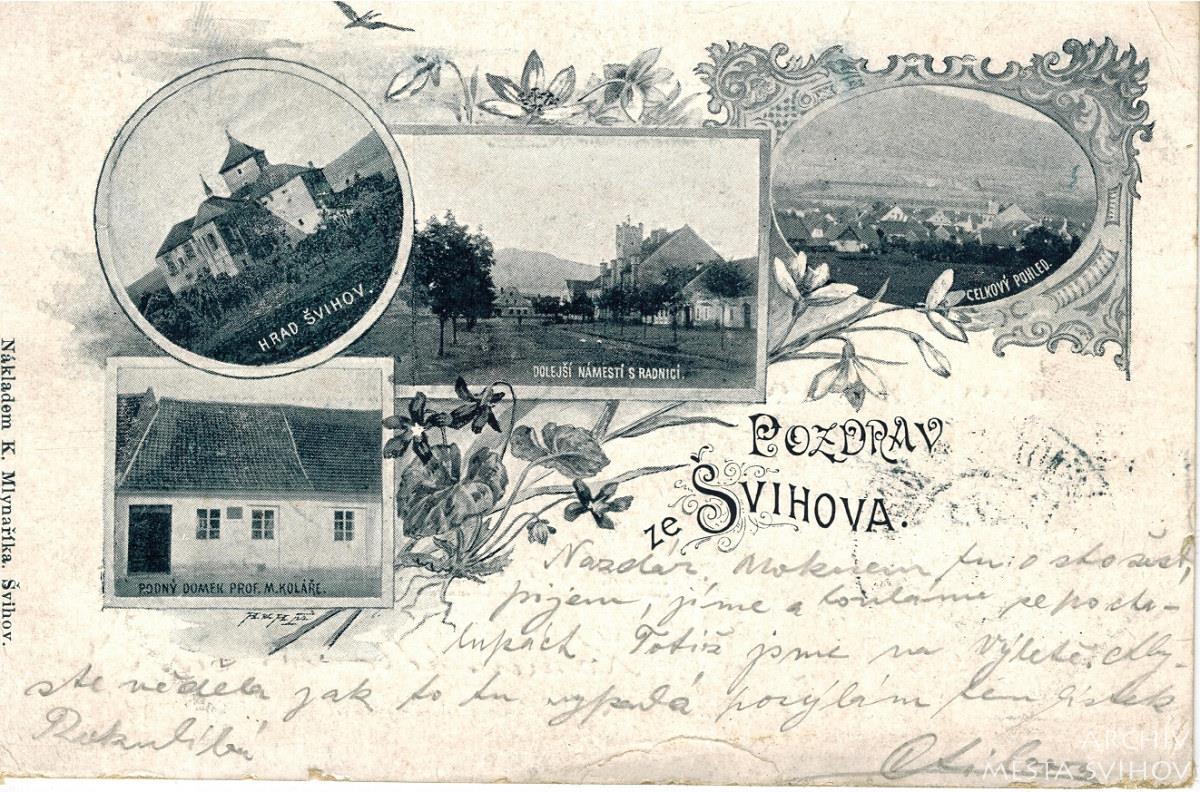 HRAD ŠVIHOV.
DOLEJŠÍ NÁMESTÍ S RADNICÍ.
CELKOVÝ POHLED.
RODNÝ DOMEK PROF. M. KOLÁŘE.
Nákladem K. Mlynaříka. Švihov.
POZDRAV
ze ŠVIHOVA.
Nazdar. Moknem tu o
pijem, jíme a touláme se po cha-
lupách. Totiž jsme na výletě. Aby-
ste věděla jak to tu vypadá posýlám ten lístek
ARCHIV
MĚSTA ŠVIHOV